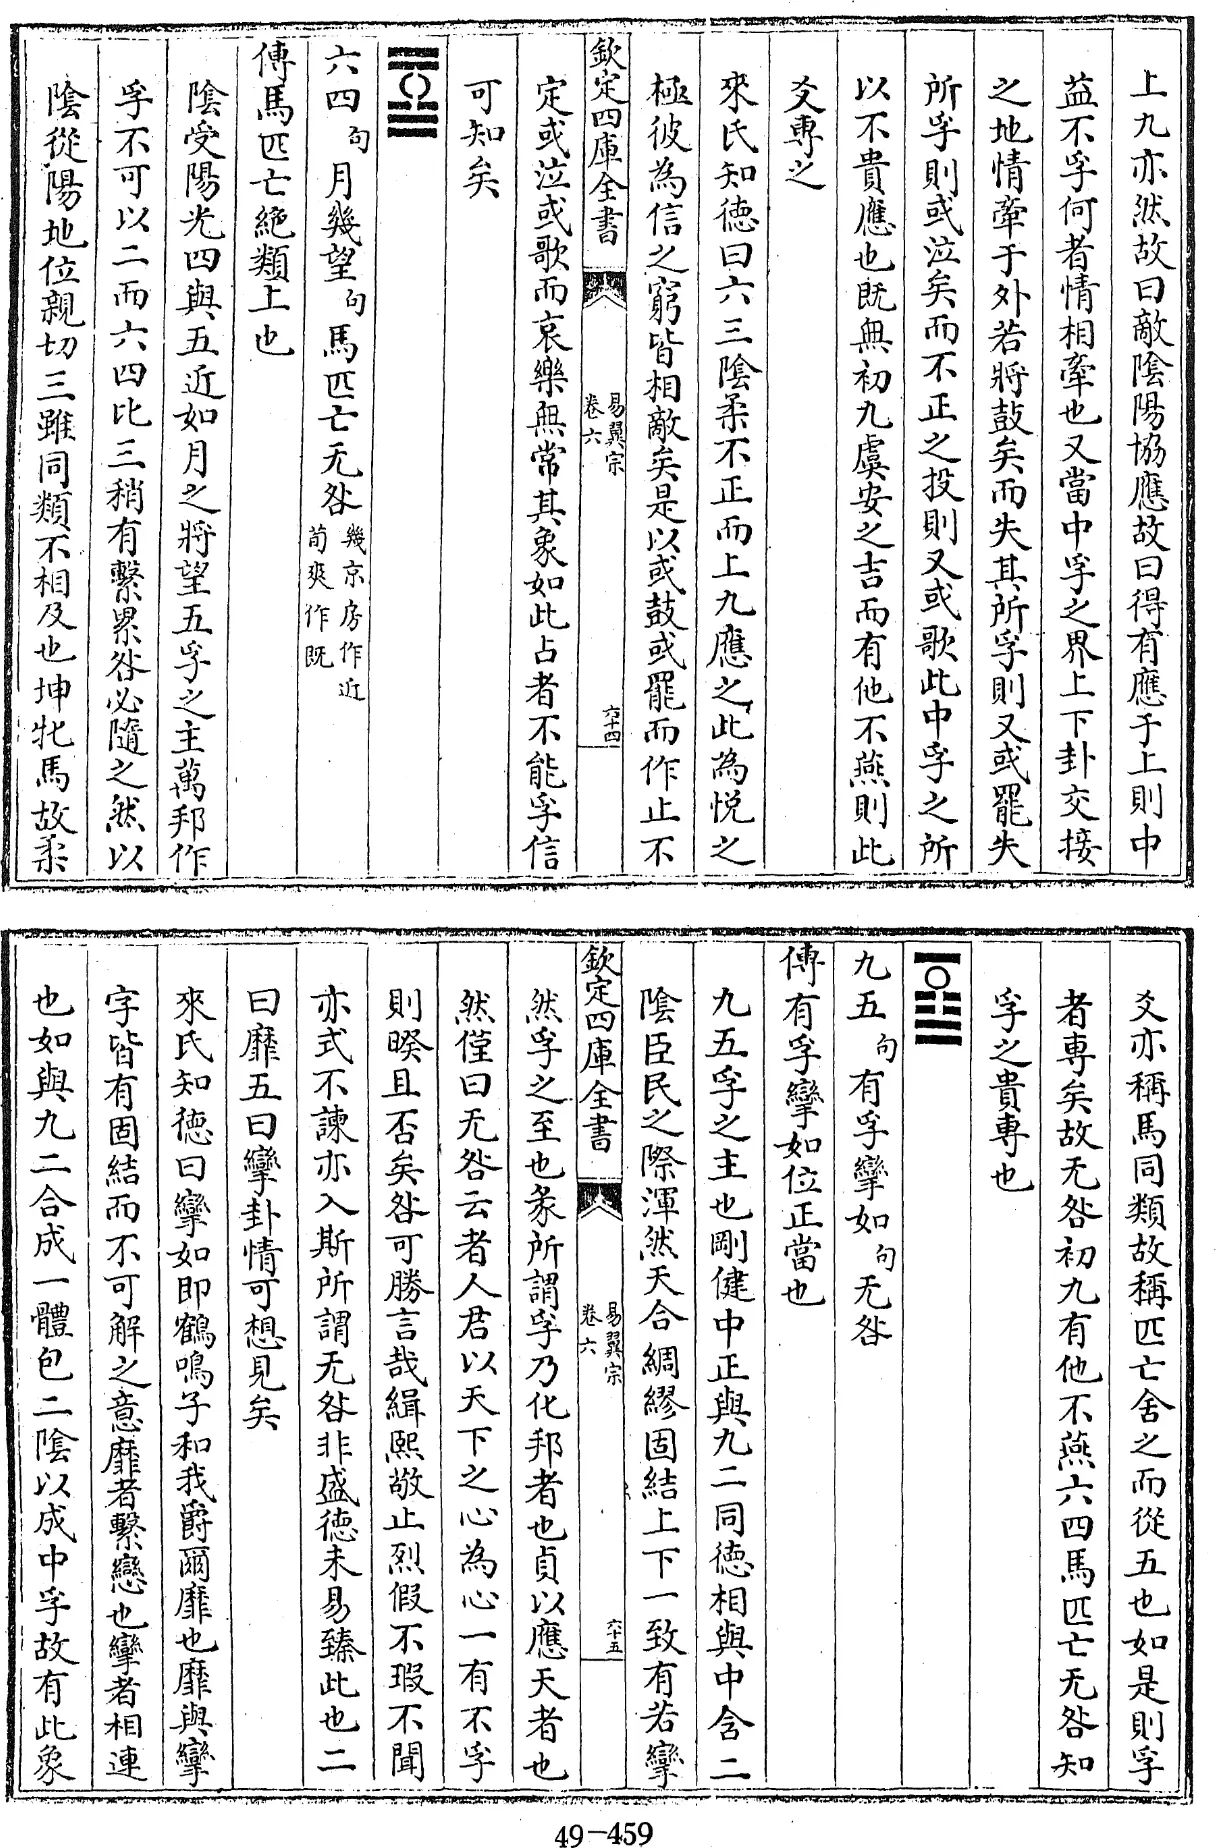 上九亦然故曰敵陰陽協應故曰得有應于上則中
益不孚何者情相牽也又當中孚之界上下卦交接
之地情牽于外若將鼓矣而失其所孚則又或罷失
所孚則或泣矣而不正之投則又或歌此中孚之所
以不貴應也既無初九虞安之吉而有他不燕則此
爻專之
來氏知德曰六三陰柔不正而上九應之此為悅之
極彼為信之窮皆相敵矣是以或鼓或罷而作止不
欽定四庫全書
易翼宗
卷六
六十四
定或泣或歌而哀樂無常其象如此占者不能孚信
可知矣
六四句月幾望句馬匹亡无咎幾京房作近
荀爽作既
傳馬匹亡絕類上也
陰受陽光四與五近如月之將望五孚之主萬邦作
孚不可以二而六四比三稍有繫累咎必隨之然以
陰從陽地位親切三雖同類不相及也坤牝馬故柔
爻亦稱馬同類故稱匹亡舍之而從五也如是則孚
者專矣故无咎初九有他不燕六四馬匹亡无咎知
孚之貴專也
九五句有孚攣如句无咎
傳有孚攣如位正當也
九五孚之主也剛健中正與九二同德相與中含二
陰臣民之際渾然天合綢繆固結上下一致有若攣
欽定四庫全書
易翼宗
卷六
六十五
然孚之至也彖所謂孚乃化邦者也貞以應天者也
然僅曰无咎云者人君以天下之心為心一有不孚
則暌且否矣咎可勝言哉緝熙敬止烈假不瑕不聞
亦式不諫亦入斯所謂无咎非盛德未易臻此也二
曰靡五曰攣卦情可想見矣
來氏知德曰攣如即鶴鳴子和我爵爾靡也靡與攣
字皆有固結而不可解之意靡者繫戀也攣者相連
也如與九二合成一體包二陰以成中孚故有此象
49-459